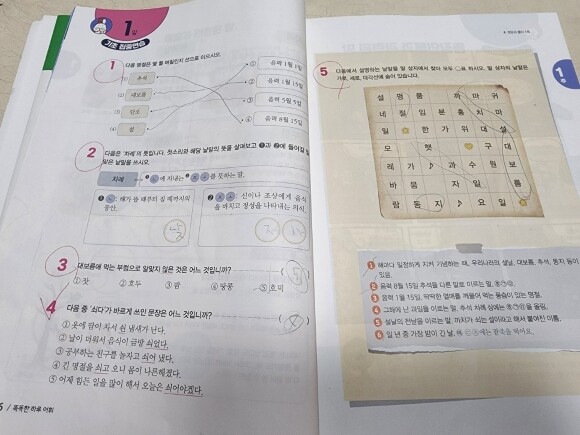 1
기초 집중연습
1 다음 명절은 몇 월 며칠인지 선으로 이으시오.
(1) 추석
(2) 대보름
(3) 단오
(4) 설
① 음력 1월 1일
② 음력 1월 15일
③ 음력 5월 5일
④ 음력 8월 15일
2 다음은 '차례'의 뜻입니다. 첫소리와 해당 낱말의 뜻을 살펴보고 ❶과 ❷에 들어갈
맞은 낱말을 쓰시오.
차례
❶ 해가 뜰 때부터 질 때까지의
동안.
❷ 신이나 조상에게 음식
을 바치고 정성을 나타내는 의식.
3 대보름에 먹는 부럼으로 알맞지 않은 것은 어느 것입니까?
① 잣 ② 호두 ③ 밤 ④ 땅콩 ⑤ 호미
4 다음 중 '쇠다'가 바르게 쓰인 문장은 어느 것입니까?
① 옷에 땀이 차서 쉰 냄새가 난다.
② 날이 더워서 음식이 금방 쇠었다.
③ 공부하는 친구를 놀자고 쇠어 냈다.
④ 긴 명절을 쇠고 오니 몸이 나른해졌다.
⑤ 어제 힘든 일을 많이 해서 오늘은 쇠어야겠다.
6 / 똑똑한 하루 어휘
1
5 다음에서 설명하는 낱말을 말 상자에서 찾아 모두 ○표 하시오. 말 상자의 낱말은
가로, 세로, 대각선에 숨어 있습니다.
설 명 름 까 마 귀
네 절 임 본 홍 치
일 한 가 위 대 설
모 햇 구 대
레 가 ♪ 과 수 원 보
바 뭄 자 일 름
람 동 지 ♪ 요 일
❶ 해마다 일정하게 지켜 기념하는 때. 우리나라의 설날, 대보름, 추석, 동지 등이
있음.
❷ 음력 8월 15일 추석을 다른 말로 이르는 말.
❸ 음력 1월 15일. 딱딱한 열매를 깨물어 먹는 풍습이 있는 명절.
❹ 그해에 난 과일을 이르는 말. 추석 차례 상에는
❺ 설날의 전날을 이르는 말. 까치가 쇠는 설이라고 해서 붙여진 이름.
❻ 일 년 중 가장 밤이 긴 날.